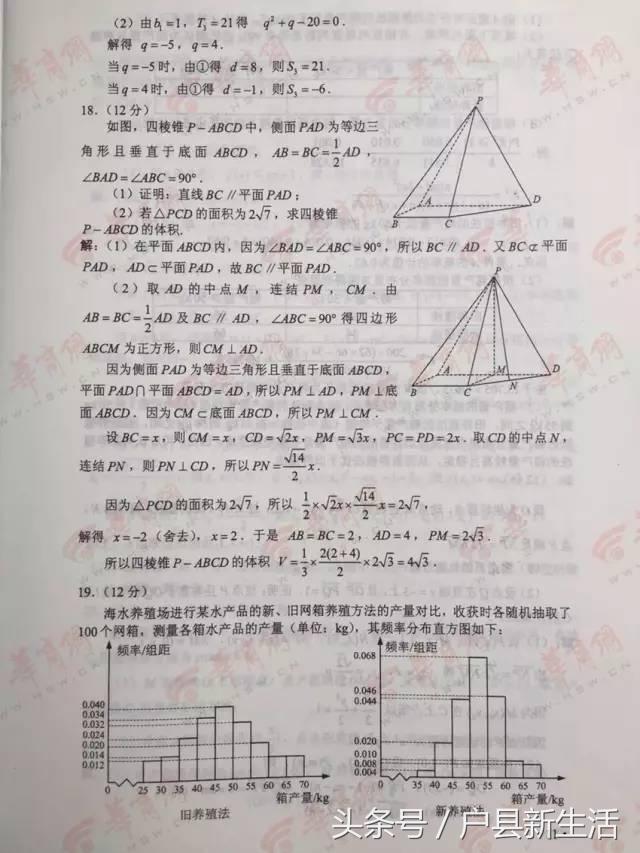 （2）由b₁=1，T₃=21得 q²+q-20=0．
解得 q=-5，q=4．
当q=-5时，由①得 d=8，则S₃=21．
当q=4时，由①得 d=-1，则S₃=-6．
18．（12分）
如图，四棱锥P-ABCD中，侧面PAD为等边三
角形且垂直于底面ABCD，AB=BC=1/2AD，
∠BAD=∠ABC=90°．
（1）证明：直线BC∥平面PAD；
（2）若△PCD的面积为2√7，求四棱锥
P-ABCD的体积.
P
A
D
B
C
解：（1）在平面ABCD内，因为∠BAD=∠ABC=90°，所以BC∥AD．又BC⊄平面
PAD，AD⊂平面PAD，故BC∥平面PAD．
（2）取AD的中点M，连结PM，CM．由
AB=BC=1/2AD及BC∥AD，∠ABC=90°得四边形
ABCM为正方形，则CM⊥AD．
P
A
M
D
B
C
N
因为侧面PAD为等边三角形且垂直于底面ABCD，
平面PAD∩平面ABCD=AD，所以PM⊥AD，PM⊥底
面ABCD．因为CM⊂底面ABCD，所以PM⊥CM．
设BC=x，则CM=x，CD=√2x，PM=√3x，PC=PD=2x．取CD的中点N，
连结PN，则PN⊥CD，所以PN=√14/2x．
因为△PCD的面积为2√7，所以 1/2×√2x×√14/2x=2√7，
解得 x=-2（舍去），x=2．于是 AB=BC=2，AD=4，PM=2√3．
所以四棱锥P-ABCD的体积 V=1/3×2(2+4)/2×2√3=4√3．
19．（12分）
海水养殖场进行某水产品的新、旧网箱养殖方法的产量对比，收获时各随机抽取了
100个网箱，测量各箱水产品的产量（单位：kg），其频率分布直方图如下：
频率/组距
0.040
0.034
0.032
0.024
0.020
0.014
0.012
0 25 30 35 40 45 50 55 60 65 70
箱产量/kg
旧养殖法
频率/组距
0.068
0.046
0.044
0.020
0.010
0.008
0.004
0 35 40 45 50 55 60 65 70
箱产量/kg
新养殖法
华育网
WWW.HSW.CN
头条号／户县新生活